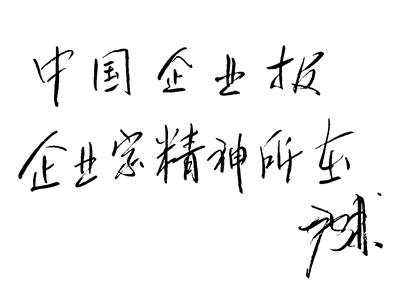 中国企业报
企业家精神所在